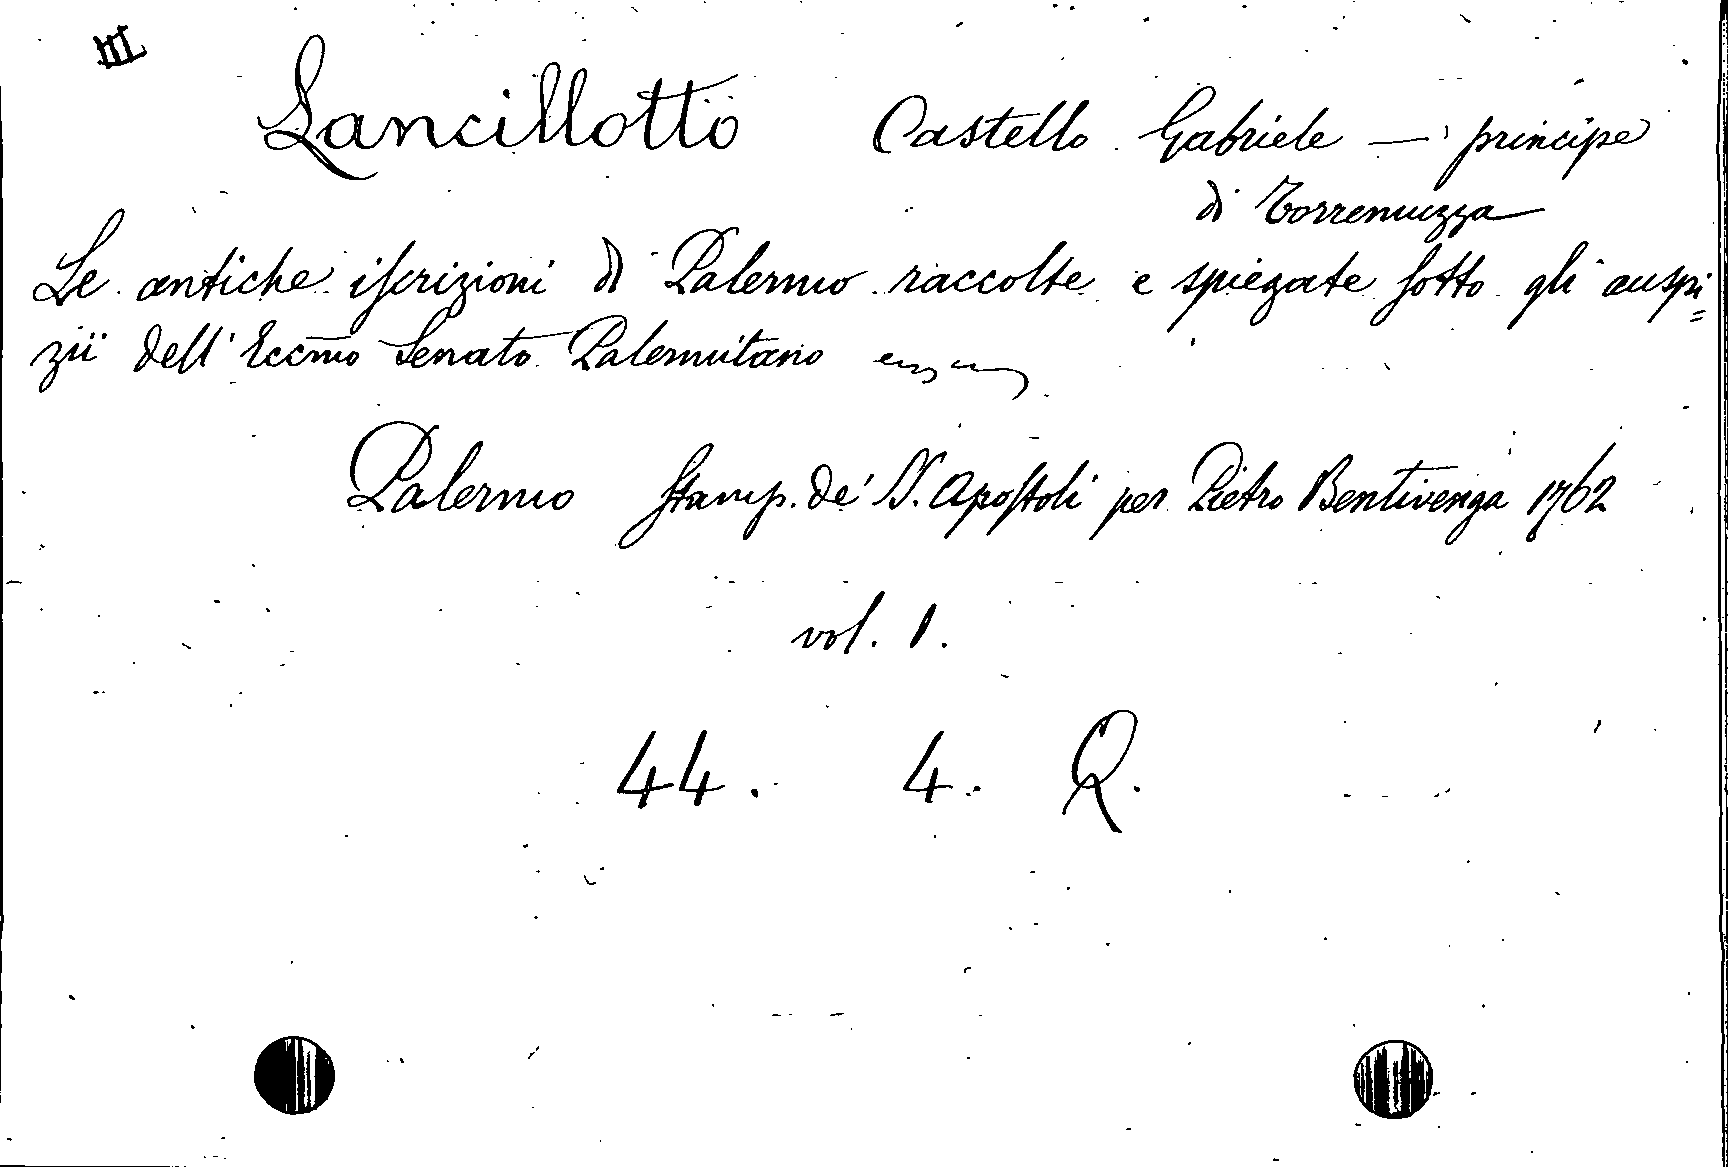 III
Lancillotto Castello Gabriele — principe
di Torremuzza
Le antiche iscrizioni di Palermo raccolte e spiegate sotto gli auspi=
zii dell'Eccmo Senato Palermitano
Palermo Stamp. de' S. Apostoli per Pietro Bentivenga 1762
vol. 1.
44. 4. Q.